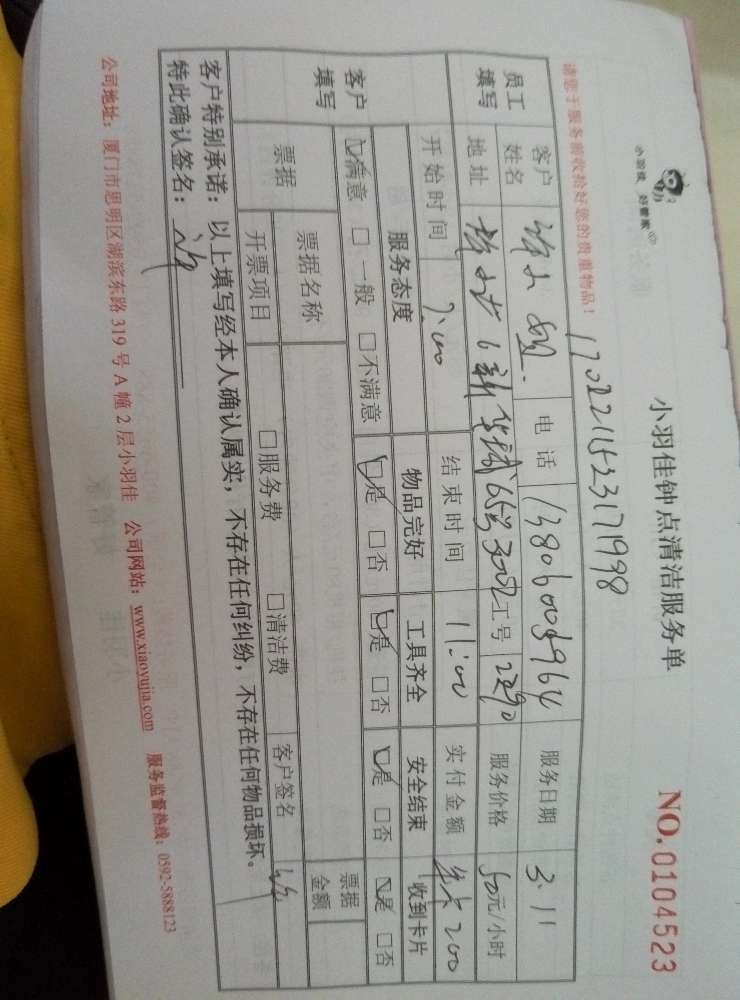 小羽佳 好管家
小羽佳钟点清洁服务单
NO.0104523
请您于服务前收拾好您的贵重物品!
1702211523171998
员工填写
客户姓名
电话 13806008964
服务日期 3.11
地址
6583002
工号 2290
服务价格 50元/小时
客户填写
开始时间 7:00
结束时间 11:00
实付金额 200
服务态度 物品完好 工具齐全 安全结束 收到卡片
☑满意 □一般 □不满意 ☑是 □否 ☑是 □否 ☑是 □否 ☑是 □否
票据 票据名称 票据金额
开票项目 □服务费 □清洁费 客户签名
客户特别承诺:以上填写经本人确认属实,不存在任何纠纷,不存在任何物品损坏。
特此确认签名:
公司地址:厦门市思明区湖滨东路 319 号 A 幢 2 层小羽佳 公司网站:www.xiaoyujia.com 服务监督热线:0592-5888123